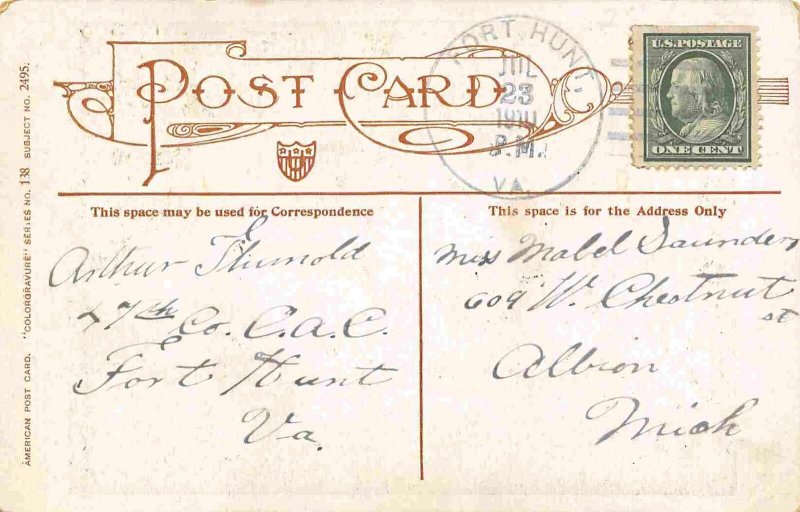 POST CARD
FORT HUNT,
JUL
23
1910
P.M.
VA.
U.S. POSTAGE
ONE CENT
This space may be used for Correspondence
This space is for the Address Only
Arthur
47th Co. C.A.C.
Fort Hunt
Va.
Miss Mabel Saunders
609 W. Chestnut
st
Albion
Mich
AMERICAN POST CARD. "COLORGRAVURE" SERIES NO. 138 SUBJECT NO. 2495.